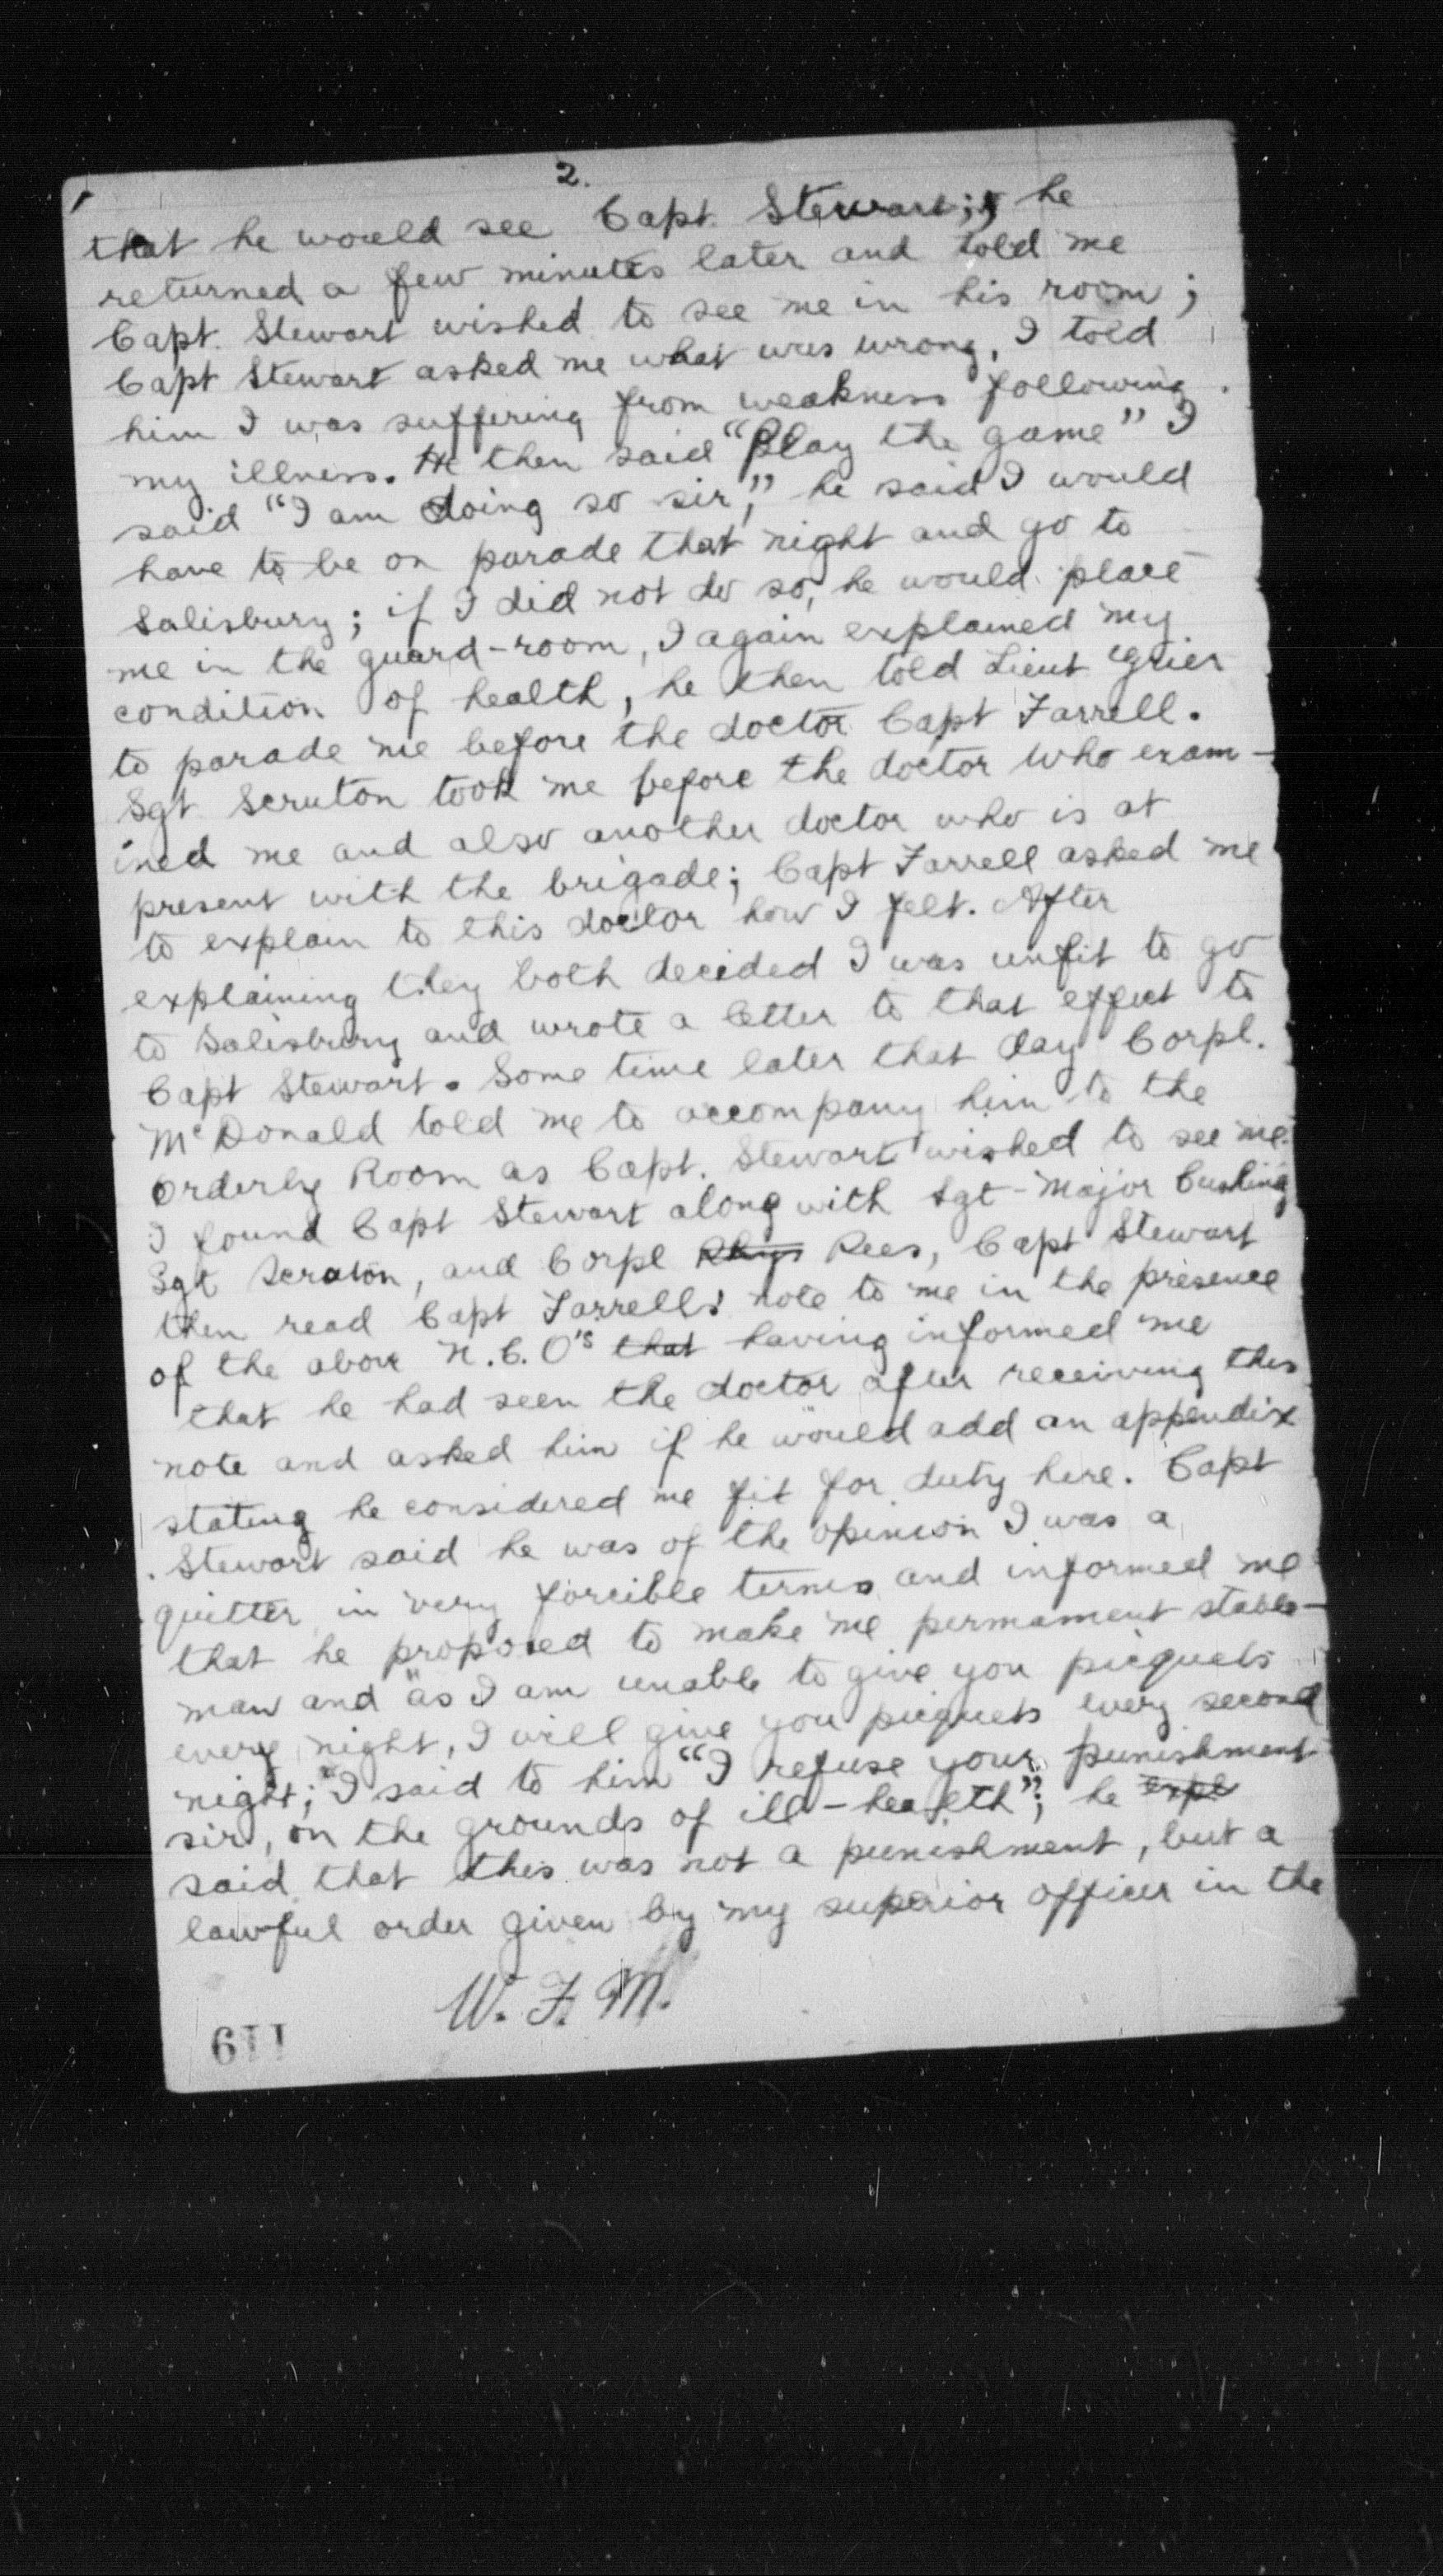 2.
that he would see Capt. Stewart; he
returned a few minutes later and told me
Capt. Stewart wished to see me in his room;
Capt Stewart asked me what was wrong, I told
him I was suffering from weakness following
my illness. He then said "Play the game" I
said "I am doing so sir," he said I would
have to be on parade that night and go to
Salisbury; if I did not do so, he would place
me in the guard-room, I again explained my
condition of health, he then told Lieut Grier
to parade me before the doctor Capt Farrell.
Sgt Scruton took me before the doctor who exam-
ined me and also another doctor who is at
present with the brigade; Capt Farrell asked me
to explain to this doctor how I felt. After
explaining they both decided I was unfit to go
to Salisbury and wrote a letter to that effect to
Capt Stewart. Some time later that day Corpl.
McDonald told me to accompany him to the
Orderly Room as Capt. Stewart wished to see me.
I found Capt Stewart along with Sgt-Major Cushing
Sgt Scruton, and Corpl Rhys Rees, Capt Stewart
then read Capt Farrell's note to me in the presence
of the above N.C.O's that having informed me
that he had seen the doctor after receiving this
note and asked him if he would add an appendix
stating he considered me fit for duty here. Capt
Stewart said he was of the opinion I was a
quitter in very forcible terms and informed me
that he proposed to make me permament stable-
man and "as I am unable to give you picquets
every night, I will give you picquets every second
night;" I said to him "I refuse your punishment
sir, on the grounds of ill-health"; he expl
said that this was not a punishment, but a
lawful order given by my superior officer in the
W. F. M.
119